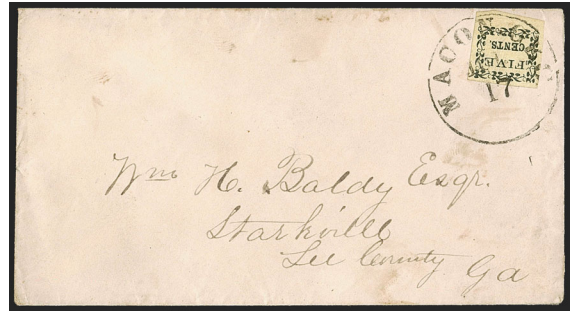 MACON GA.
17
FIVE
CENTS.
Wm H. Baldy Esqr.
Starkville
Lee County Ga